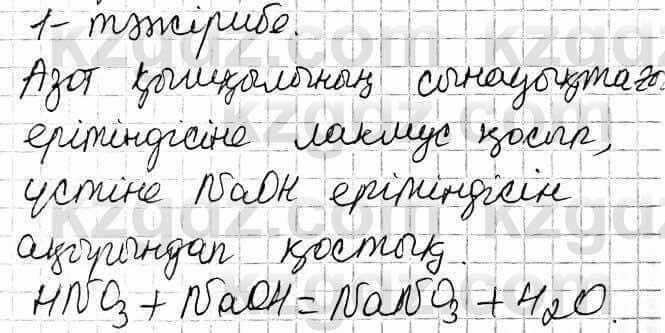 1-тәжірибе.
Азот қышқылының сынауықтағы
ерітіндісіне лакмус қосып,
үстіне NaOH ерітіндісін
ақырындап қостық.
HNO₃ + NaOH = NaNO₃ + H₂O.